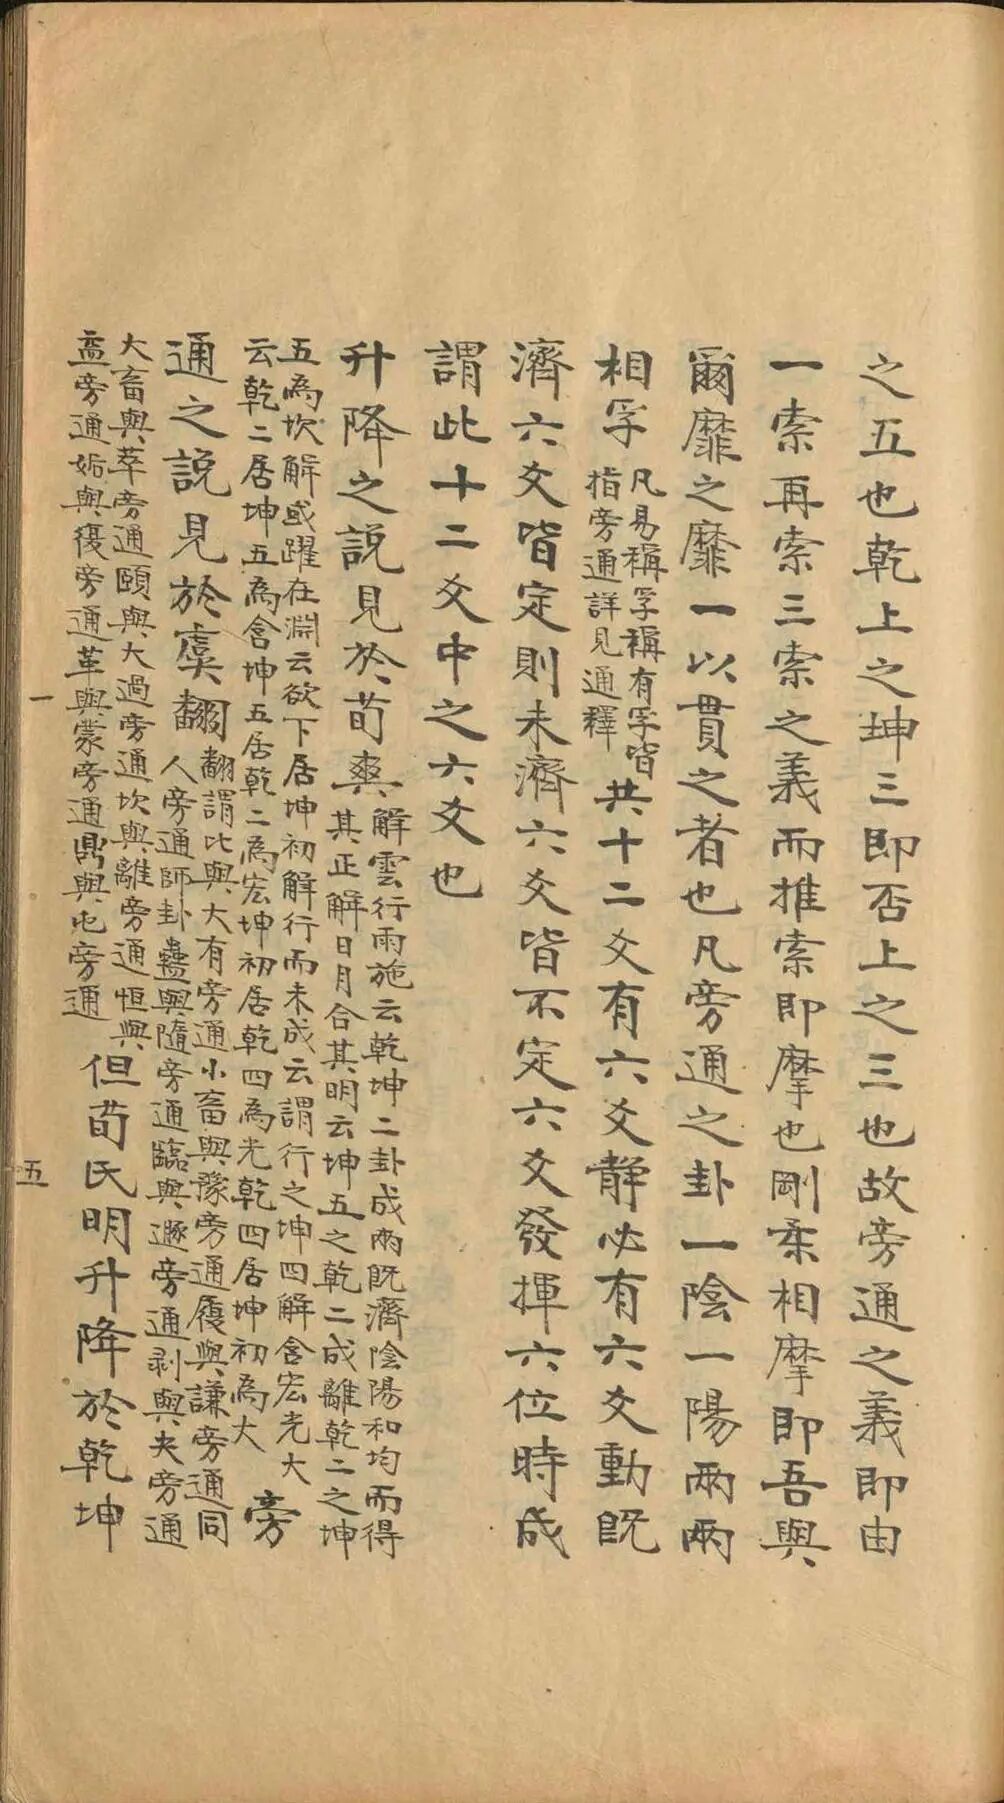 之五也乾上之坤三即否上之三也故旁通之義即由
一索再索三索之義而推索即摩也剛柔相摩即吾與
爾靡之靡一以貫之者也凡旁通之卦一陰一陽兩兩
相孚
凡易稱孚稱有孚皆
指旁通詳見通釋
共十二爻有六爻靜必有六爻動既
濟六爻皆定則未濟六爻皆不定六爻發揮六位時成
謂此十二爻中之六爻也
升降之說見於荀爽
解雲行雨施云乾坤二卦成兩既濟陰陽和均而得
其正解日月合其明云坤五之乾二成離乾二之坤
五為坎解或躍在淵云欲下居坤初解行而未成云謂行之坤四解含宏光大
云乾二居坤五為含坤五居乾二為宏坤初居乾四為光乾四居坤初為大
旁
通之說見於虞翻
翻謂比與大有旁通小畜與豫旁通履與謙旁通同
人旁通師卦蠱與隨旁通臨與遯旁通剥與夬旁通
大畜與萃旁通頤與大過旁通坎與離旁通恒與
益旁通姤與復旁通革與蒙旁通鼎與屯旁通
但荀氏明升降於乾坤
一
五